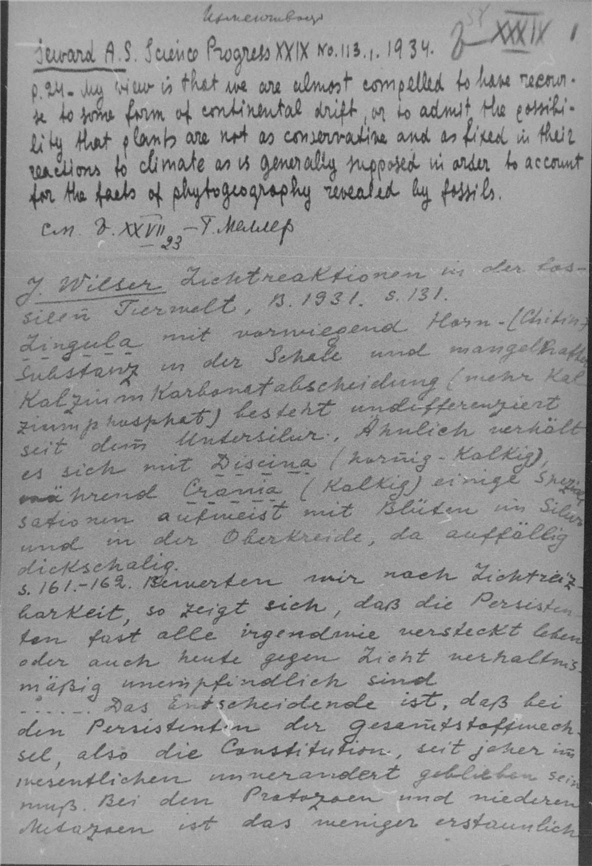 XXXIX 1
Seward A.S. Science Progress XXIX No. 113. 1. 1934.
p. 24 – My view is that we are almost compelled to have recour-
se to some form of continental drift, or to admit the possibi-
lity that plants are not as conservative and as fixed in their
reactions to climate as is generally supposed in order to account
for the facts of phytogeography revealed by fossils.
см. д. XXVII 23 – Г. Меллер
J. Wilser Lichtreaktionen in der fos-
silen Tierwelt, B. 1931. s. 131.
Lingula mit vorwiegend Horn-(Chitin-)
Substanz in der Schale und mangelhafter
Kalziumkarbonatabscheidung (mehr Kal
ziumphosphat) besteht undifferenziert
seit dem Untersilur. Ähnlich verhält
es sich mit Discina (hornig-kalkig),
während Crania (kalkig) einige Speziali
sationen aufweist mit Blüten im Silur
und in der Oberkreide, da auffällig
dickschalig.
s. 161.-162. Bewerten wir nach Lichtreiz-
barkeit, so zeigt sich, daß die Persisten-
ten fast alle irgendwie versteckt leben
oder auch heute gegen Licht verhältnis-
mäßig unempfindlich sind
...... Das Entscheidende ist, daß bei
den Persistenten der Gesamtstoffwech-
sel, also die Constitution, seit jeher im
wesentlichen unverandert geblieben sein
muß. Bei den Protozoen und niederen
Metazoen ist das weniger erstaunlich